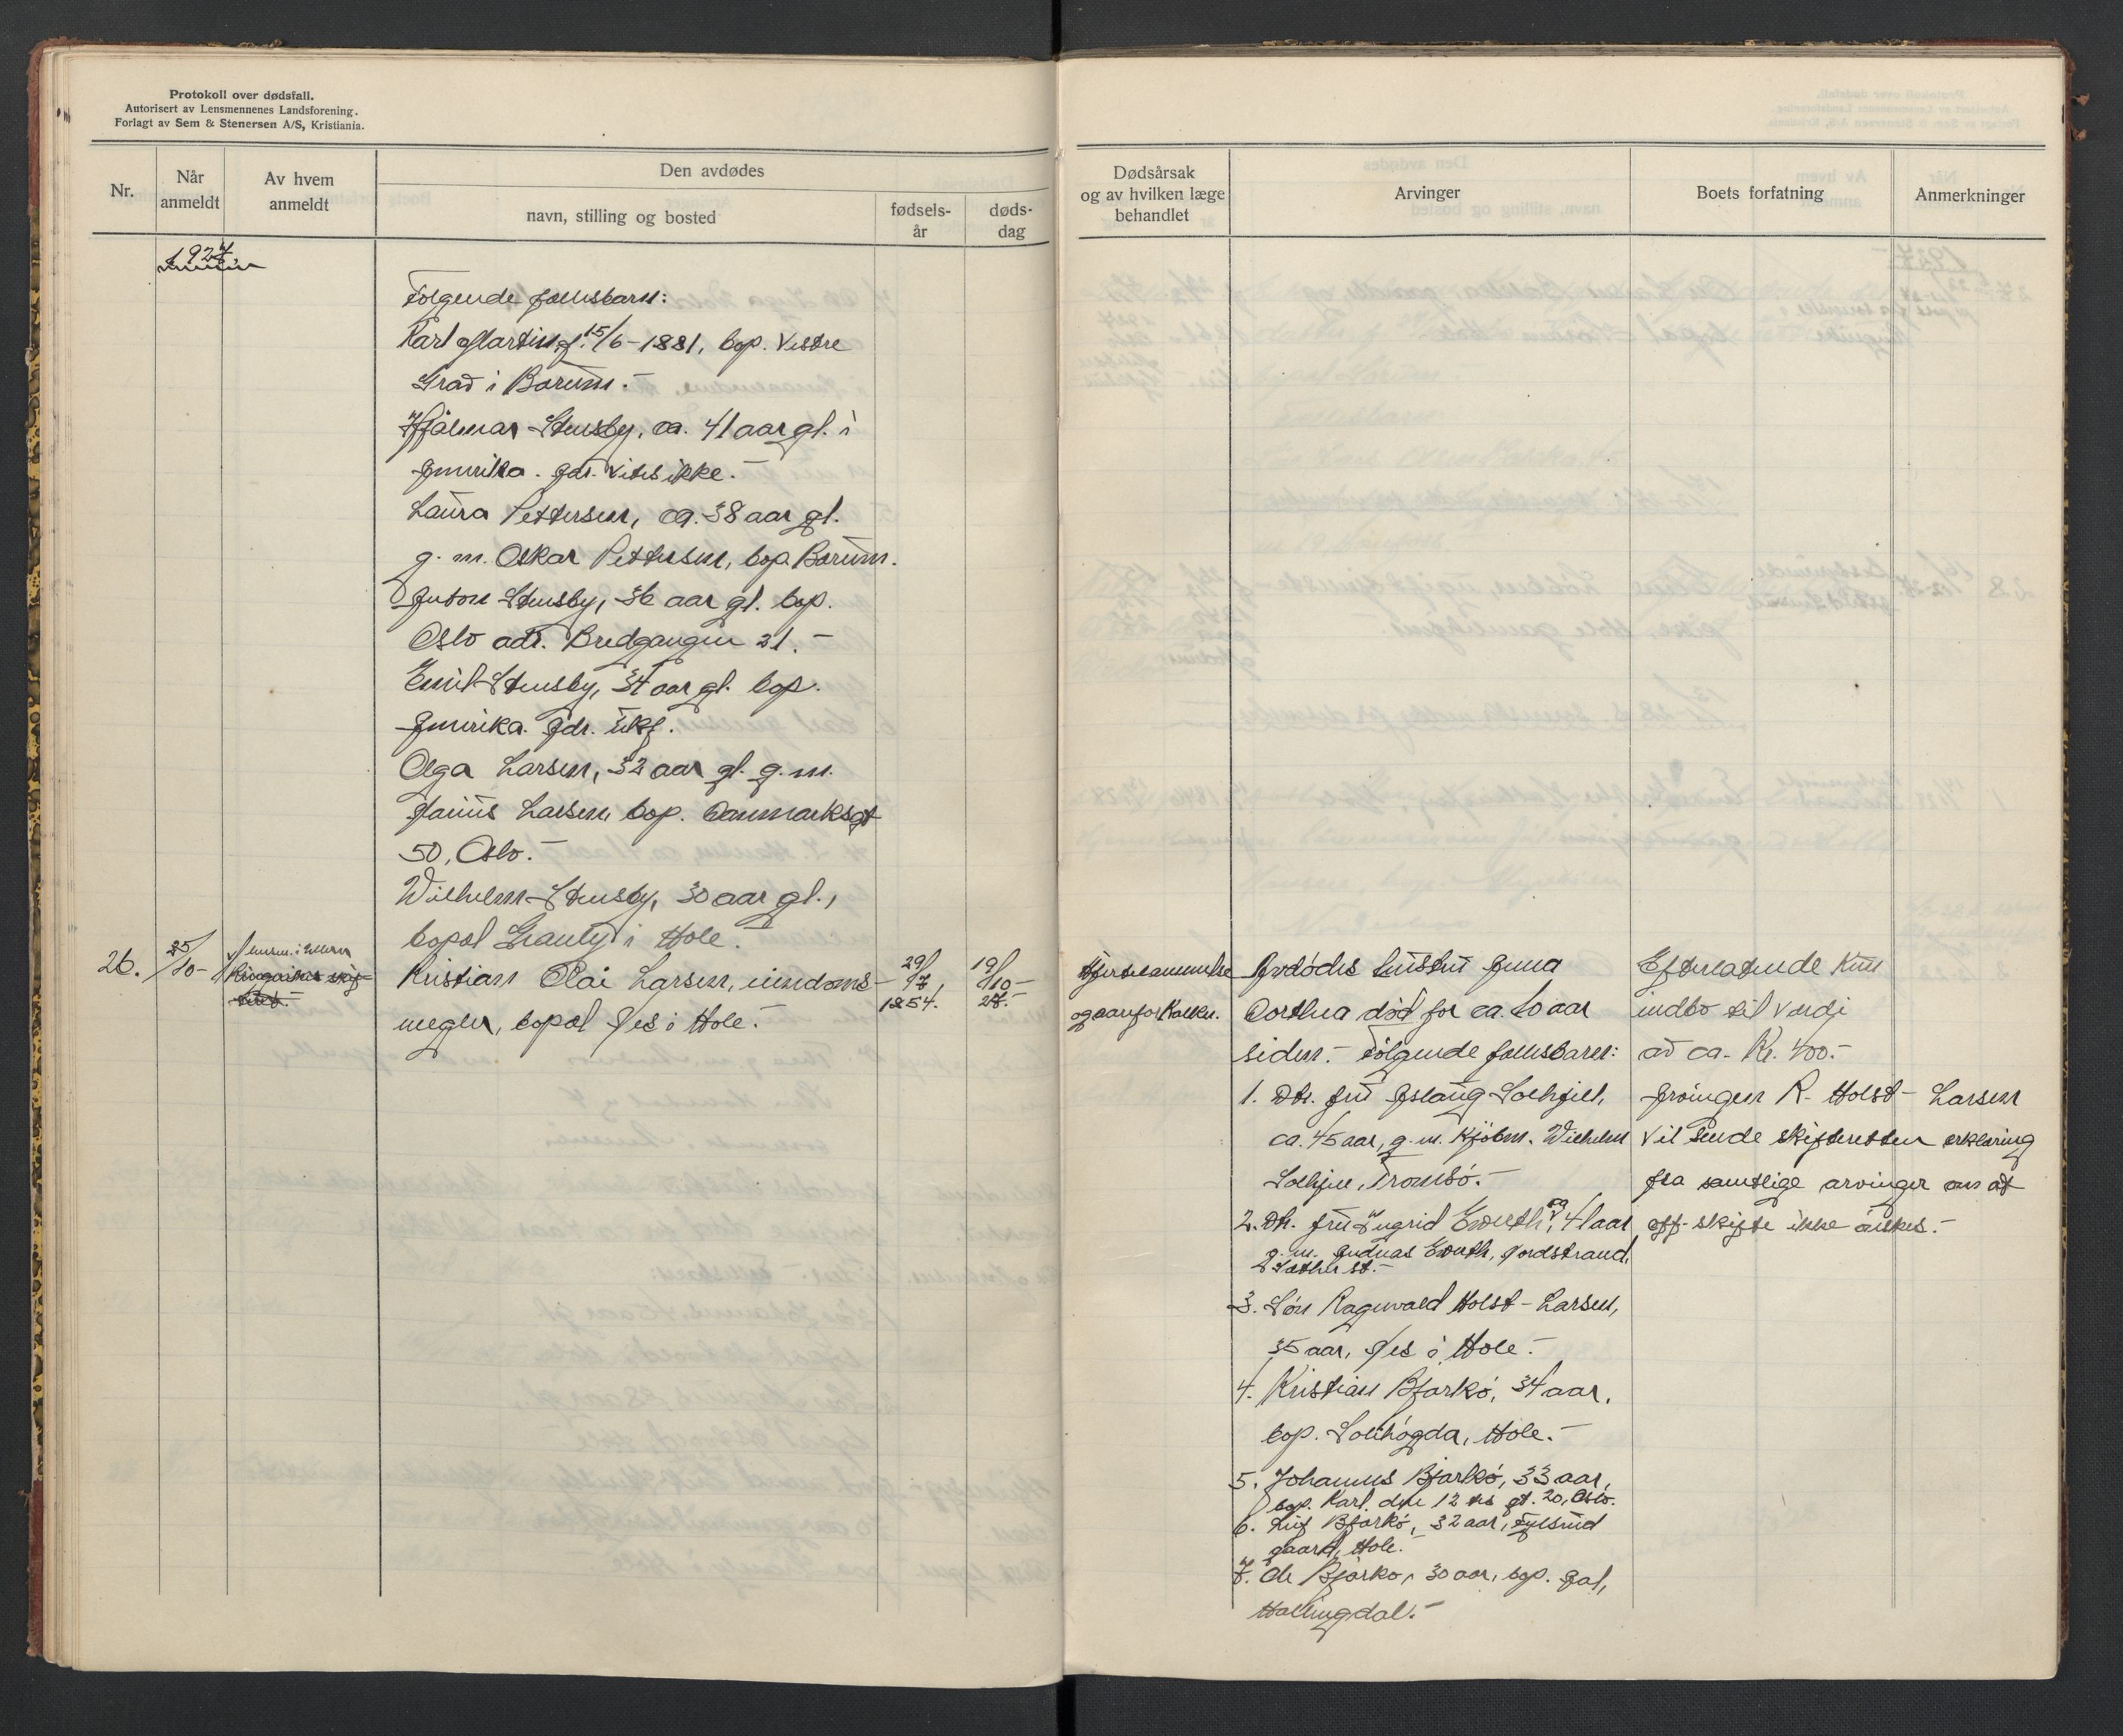 Protokoll over dødsfall.
Autorisert av Lensmennenes Landsforening.
Forlagt av Sem & Stenersen A/S, Kristiania.
Nr.
Når anmeldt
Av hvem anmeldt
Den avdødes
navn, stilling og bosted
fødsels-år
døds-dag
1927.
Følgende fællesbarn:
Karl Martin, f. 15/6-1881, bop. Vestre
i Bærum.-
Hjalmar Stensby, ca. 41 aar gl. i
Amerika. Adr. vites ikke.-
Laura Pettersen, ca. 38 aar gl.
g. m. Oskar Pettersen, bop. Bærum.
Anton Stensby, 36 aar gl. bop.
Oslo adr. Bredgangen 21.-
Emil Stensby, 34 aar gl. bop.
Amerika. Adr. ukj.
Olga Larsen, 32 aar gl. g. m.
Larsen, bop. Danmarksgt
50, Oslo.-
Wilhelm Stensby, 30 aar gl.,
bopæl i Hole.-
26.
25/10-
Ringerikes skif-
teret.-
Kristian Olai Larsen, eiendoms-
megler, bopæl Nes i Hole.-
29/7,
1854.
19/10-
27.-
Dødsårsak
og av hvilken læge
behandlet
Arvinger
Boets forfatning
Anmerkninger
Hjertelammelse
og aareforkalkn.
Avdødes hustru Anna
Dorthea død for ca. 10 aar
siden.- Følgende fællesbarn:
1. Dtr. fru Aslaug Solhjell,
ca. 45 aar, g. m. Kjøbm. Wilhelm
Solhjell, Tromsø.-
2. Dtr. fru Ingrid Ewerth, ca 41 aar
g. m. Andreas Ewerth, Nordstrand,
Sæther st.-
3. Søn Ragnvald Holst-Larsen,
35 aar, Nes i Hole.-
4. Kristian Bjørkø, 34 aar,
bop. Sollihøgda, Hole.-
5. Johannes Bjørkø, 33 aar,
bop. Karl den 12tes gt. 20, Oslo.
6. Leif Bjørkø, 32 aar,
gaard, Hole.-
7. Ole Bjørkø, 30 aar, bop. Aal,
Hallingdal.-
Efterlatende kun
indbo til verdi
av ca. Kr. 400.-
Arvingen R. Holst-Larsen
vil sende skifteretten erklæring
fra samtlige arvinger om at
off. skifte ikke ønskes.-